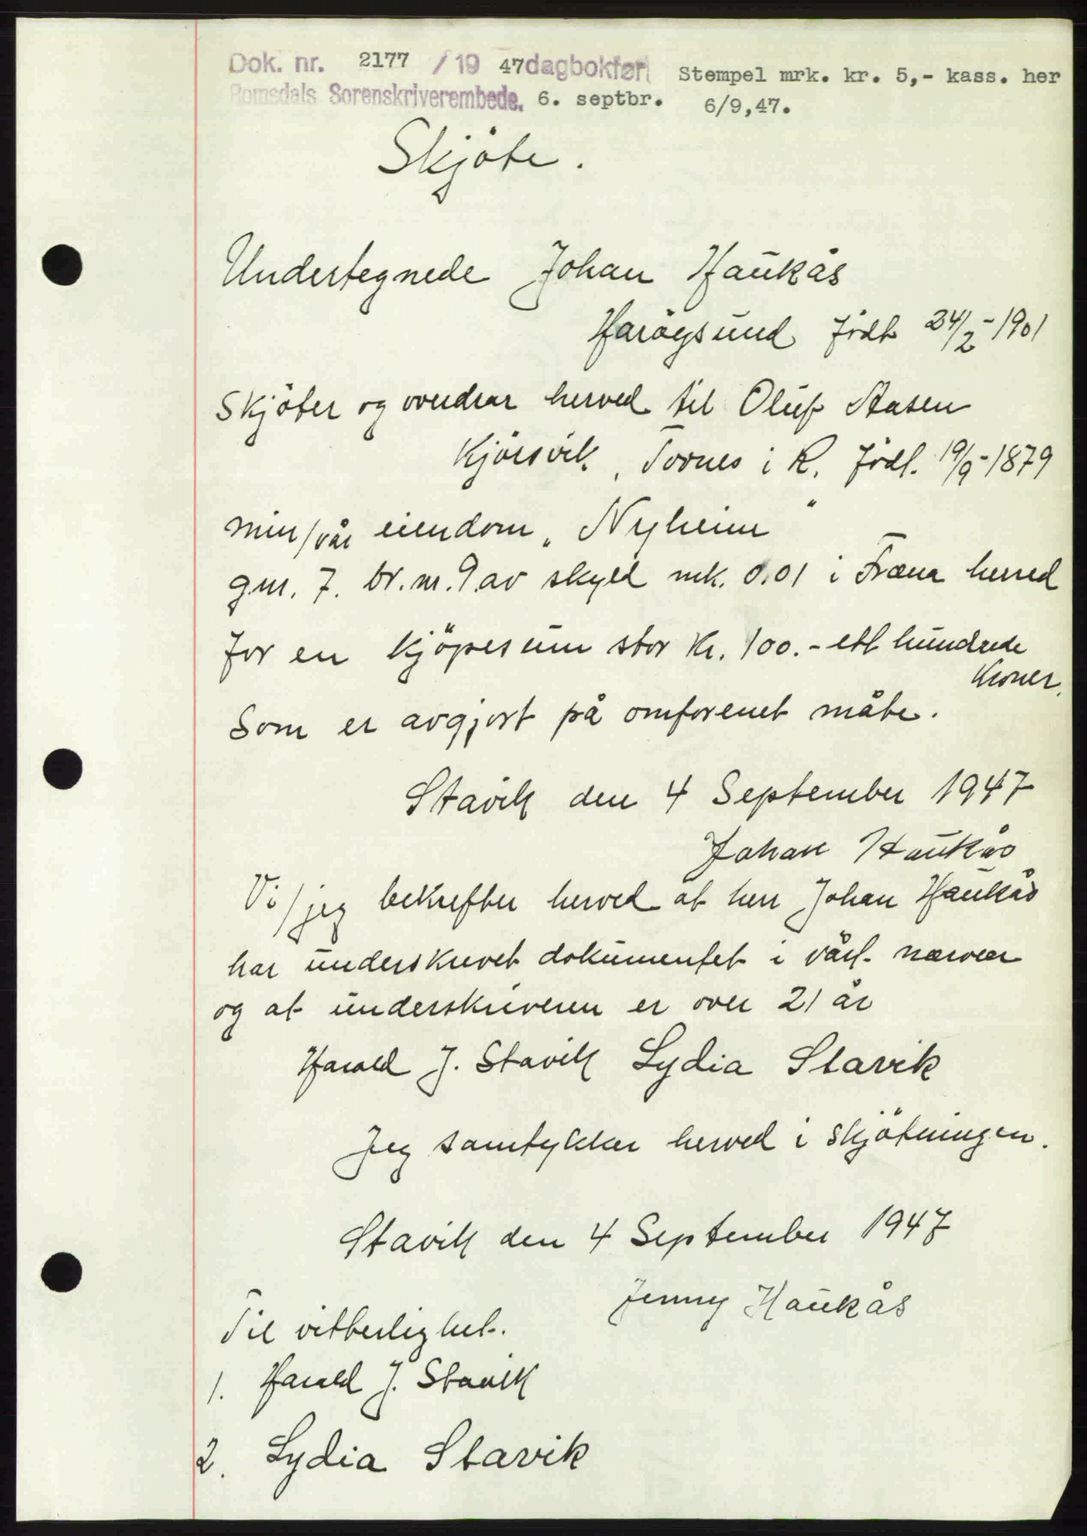 Dok. nr. 2177 / 19 47 dagbokført Stempel mrk. kr. 5,- kass. her
Romsdals Sorenskriverembede. 6. septbr. 6/9,47.
Skjöte.
Undertegnede Johan Haukås
Haröysund födt 24/2-1901
Skjöter og overdrar herved til Oluf Aasen
Kjörsvik, Tornes i R. född. 19/9-1879
min/vår eiendom „Nyheim"
gnr. 7. br.nr. 9 av skyld mk. 0.01 i Fræna herred
for en kjöpesum stor Kr. 100.- ett hundrede
Kroner.
Som er avgjort på omforenet måte.
Stavik den 4 September 1947
Johan Haukås
Vi/jeg bekrefter herved at herr Johan Haukås
har underskrevet dokumentet i vårt nærvær
og at underskriveren er over 21 år
Harald J. Stavik Lydia Stavik
Jeg samtykker herved i skjötningen.
Stavik den 4 September 1947
Jenny Haukås
Til vitterlighet.
1. Harald J. Stavik
2. Lydia Stavik